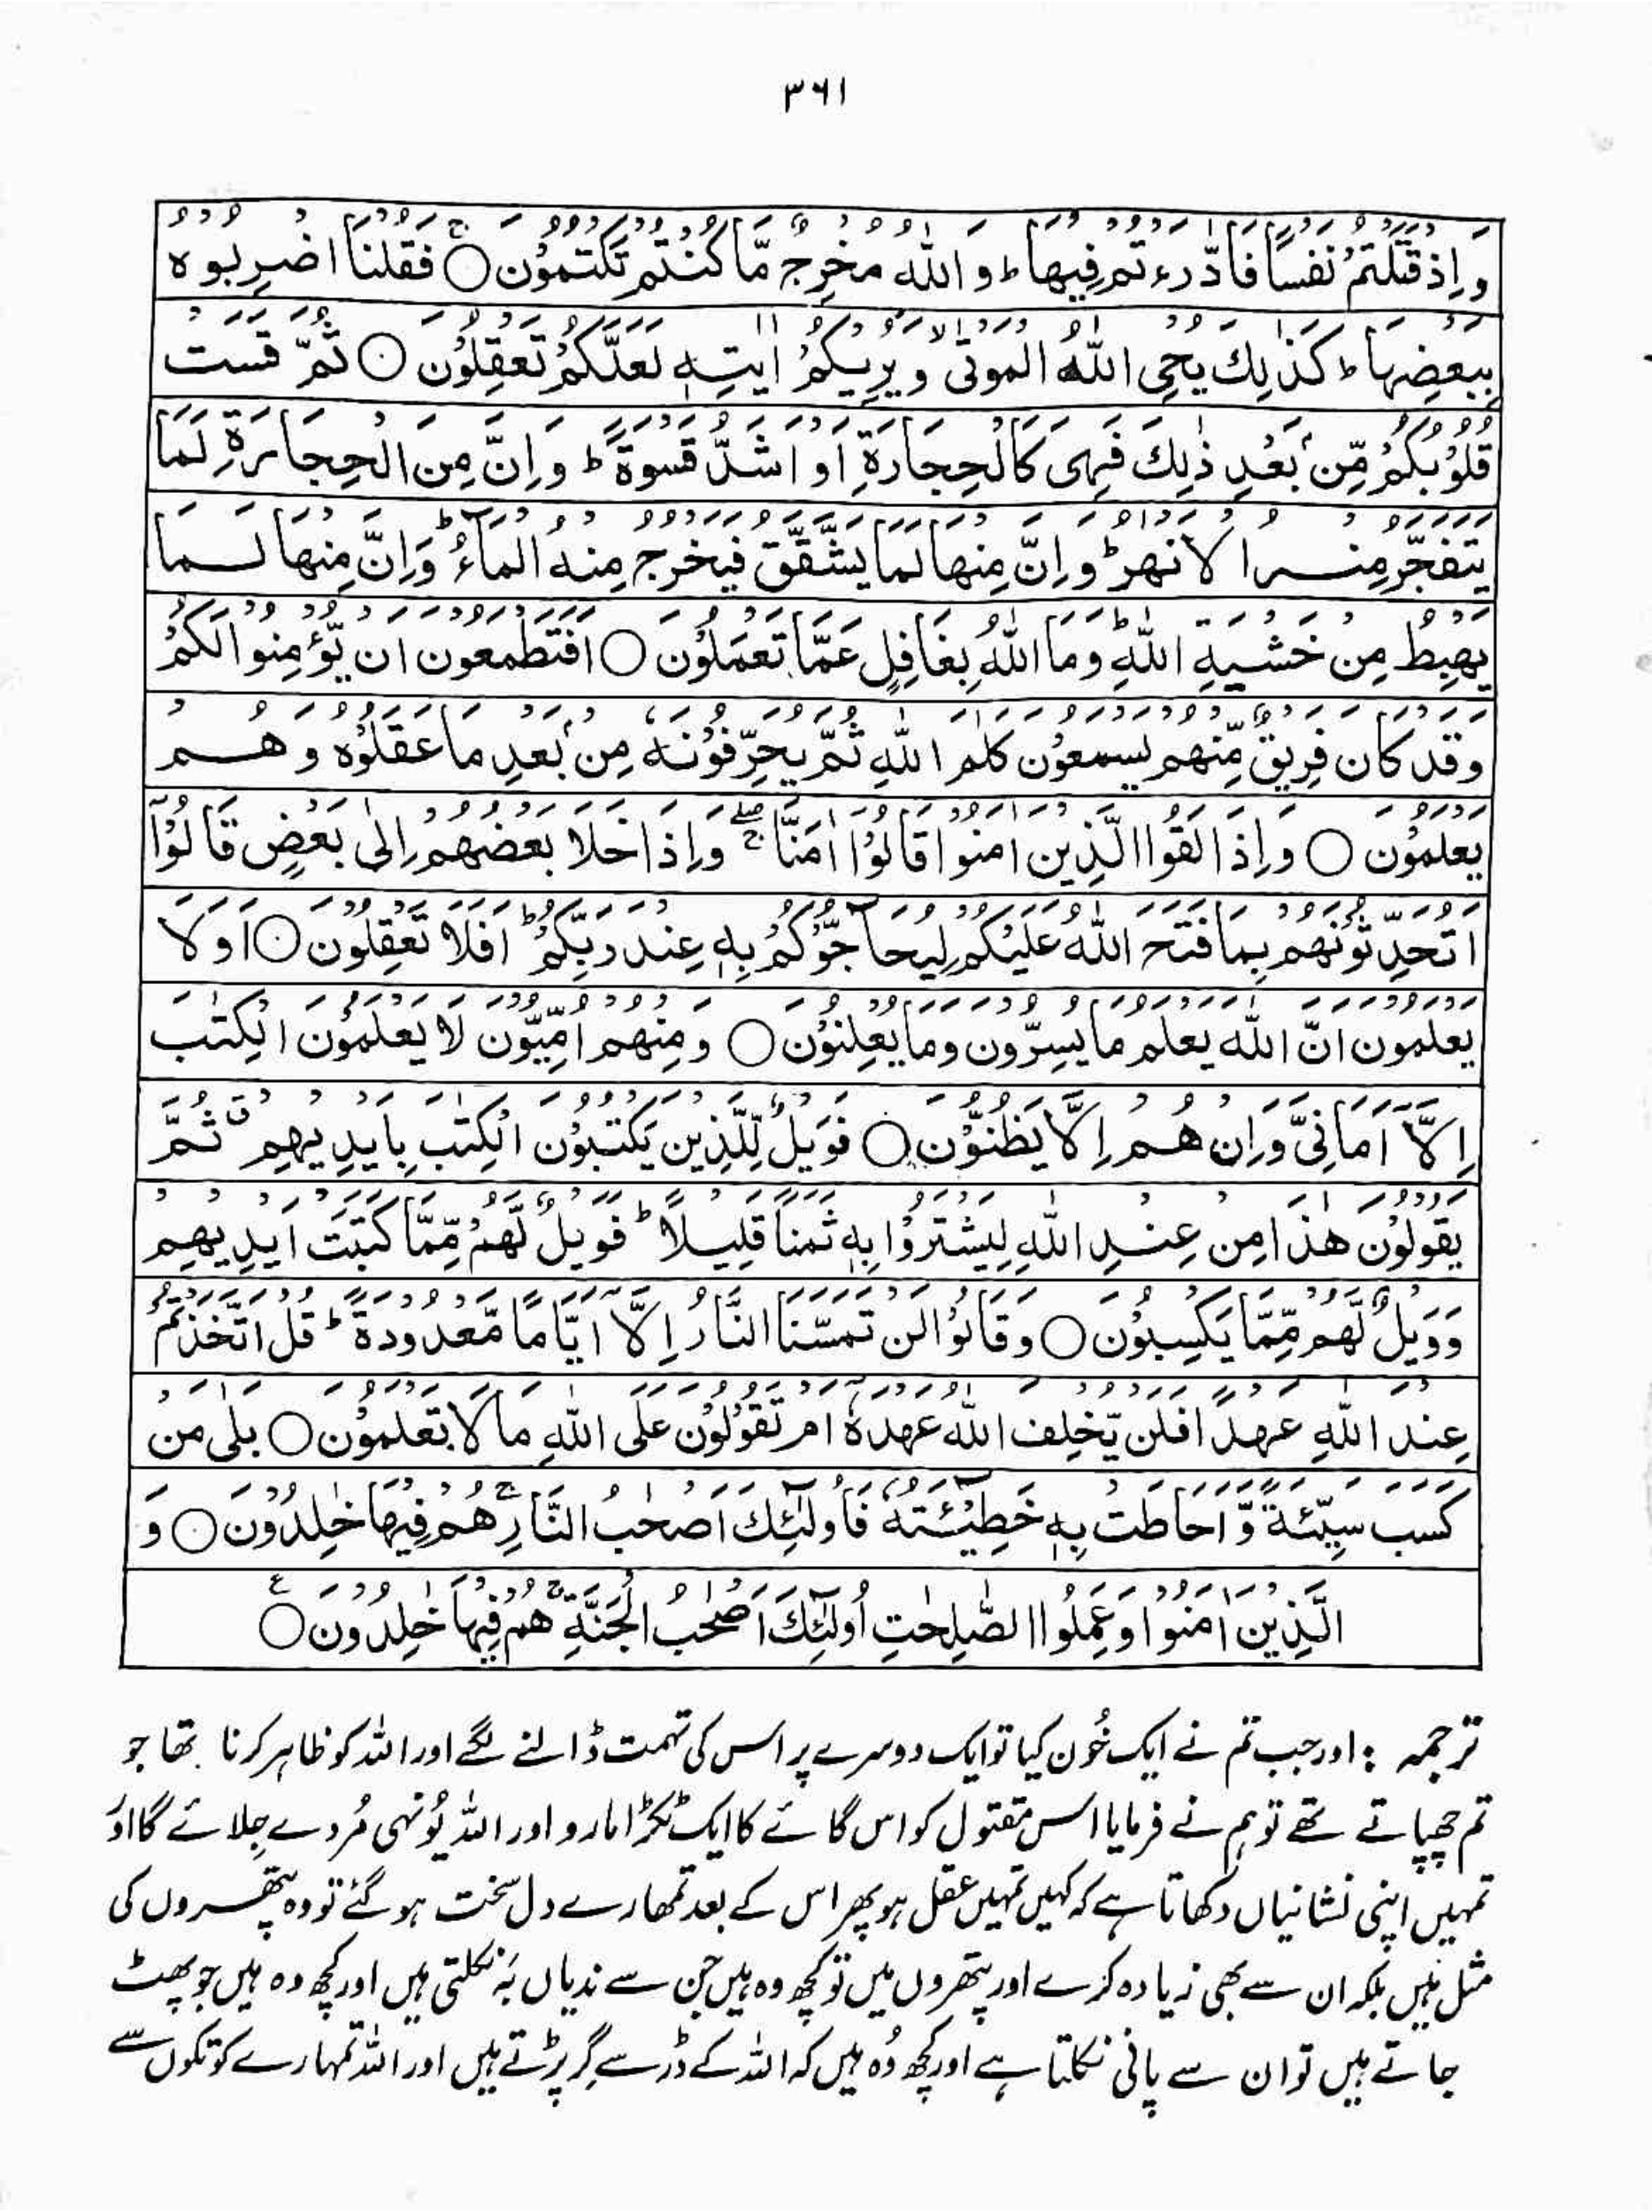 ۳۶۱
وَاِذْ قَتَلْتُمْ نَفْسًا فَادّٰرَءْتُمْ فِیْهَا ؕ وَ اللّٰهُ مُخْرِجٌ مَّا كُنْتُمْ تَكْتُمُوْنَ ○ ۚ فَقُلْنَا اضْرِبُوْهُ
بِبَعْضِهَا ؕ كَذٰلِكَ یُحْیِ اللّٰهُ الْمَوْتٰى ۙ وَیُرِیْكُمْ اٰیٰتِهٖ لَعَلَّكُمْ تَعْقِلُوْنَ ○ ثُمَّ قَسَتْ
قُلُوْبُكُمْ مِّنْۢ بَعْدِ ذٰلِكَ فَهِیَ كَالْحِجَارَةِ اَوْ اَشَدُّ قَسْوَةً ؕ وَ اِنَّ مِنَ الْحِجَارَةِ لَمَا
یَتَفَجَّرُ مِنْهُ الْاَنْهٰرُ ؕ وَ اِنَّ مِنْهَا لَمَا یَشَّقَّقُ فَیَخْرُجُ مِنْهُ الْمَآءُ ؕ وَ اِنَّ مِنْهَا لَمَا
یَهْبِطُ مِنْ خَشْیَةِ اللّٰهِ ؕ وَمَا اللّٰهُ بِغَافِلٍ عَمَّا تَعْمَلُوْنَ ○ اَفَتَطْمَعُوْنَ اَنْ یُّؤْمِنُوْا لَكُمْ
وَقَدْ كَانَ فَرِیْقٌ مِّنْهُمْ یَسْمَعُوْنَ كَلٰمَ اللّٰهِ ثُمَّ یُحَرِّفُوْنَهٗ مِنْۢ بَعْدِ مَا عَقَلُوْهُ وَ هُمْ
یَعْلَمُوْنَ ○ وَ اِذَا لَقُوا الَّذِیْنَ اٰمَنُوْا قَالُوْۤا اٰمَنَّا ۖۚ وَ اِذَا خَلَا بَعْضُهُمْ اِلٰى بَعْضٍ قَالُوْۤا
اَتُحَدِّثُوْنَهُمْ بِمَا فَتَحَ اللّٰهُ عَلَیْكُمْ لِیُحَآجُّوْكُمْ بِهٖ عِنْدَ رَبِّكُمْ ؕ اَفَلَا تَعْقِلُوْنَ ○ اَوَ لَا
یَعْلَمُوْنَ اَنَّ اللّٰهَ یَعْلَمُ مَا یُسِرُّوْنَ وَمَا یُعْلِنُوْنَ ○ وَمِنْهُمْ اُمِّیُّوْنَ لَا یَعْلَمُوْنَ الْكِتٰبَ
اِلَّاۤ اَمَانِیَّ وَ اِنْ هُمْ اِلَّا یَظُنُّوْنَ ○ فَوَیْلٌ لِّلَّذِیْنَ یَكْتُبُوْنَ الْكِتٰبَ بِاَیْدِیْهِمْ ۗ ثُمَّ
یَقُوْلُوْنَ هٰذَا مِنْ عِنْدِ اللّٰهِ لِیَشْتَرُوْا بِهٖ ثَمَنًا قَلِیْلًا ؕ فَوَیْلٌ لَّهُمْ مِّمَّا كَتَبَتْ اَیْدِیْهِمْ
وَوَیْلٌ لَّهُمْ مِّمَّا یَكْسِبُوْنَ ○ وَ قَالُوْا لَنْ تَمَسَّنَا النَّارُ اِلَّاۤ اَیَّامًا مَّعْدُوْدَةً ؕ قُلْ اَتَّخَذْتُمْ
عِنْدَ اللّٰهِ عَهْدًا فَلَنْ یُّخْلِفَ اللّٰهُ عَهْدَهٗۤ اَمْ تَقُوْلُوْنَ عَلَى اللّٰهِ مَا لَا تَعْلَمُوْنَ ○ بَلٰى مَنْ
كَسَبَ سَیِّئَةً وَّ اَحَاطَتْ بِهٖ خَطِیْٓئَتُهٗ فَاُولٰٓئِكَ اَصْحٰبُ النَّارِ ۚ هُمْ فِیْهَا خٰلِدُوْنَ ○ وَ
الَّذِیْنَ اٰمَنُوْا وَ عَمِلُوا الصّٰلِحٰتِ اُولٰٓئِكَ اَصْحٰبُ الْجَنَّةِ ۚ هُمْ فِیْهَا خٰلِدُوْنَ ○ ع
ترجمہ : اور جب تم نے ایک خُون کیا تو ایک دوسرے پر اس کی تہمت ڈالنے لگے اور اللہ کو ظاہر کرنا تھا جو
تم چھپاتے تھے تو ہم نے فرمایا اس مقتول کو اس گائے کا ایک ٹکڑا مارو اور اللہ یُونہی مُردے جِلائے گا اور
تمہیں اپنی نشانیاں دکھاتا ہے کہ کہیں تمہیں عقل ہو پھر اس کے بعد تمھارے دل سخت ہو گئے تو وہ پتھروں کی
مثل ہیں بلکہ ان سے بھی زیادہ کڑے اور پتھروں میں تو کچھ وہ ہیں جن سے ندیاں بَہ نکلتی ہیں اور کچھ وہ ہیں جو پھٹ
جاتے ہیں تو ان سے پانی نکلتا ہے اور کچھ وُہ ہیں کہ اللہ کے ڈر سے گِر پڑتے ہیں اور اللہ تمہارے کوتکوں سے